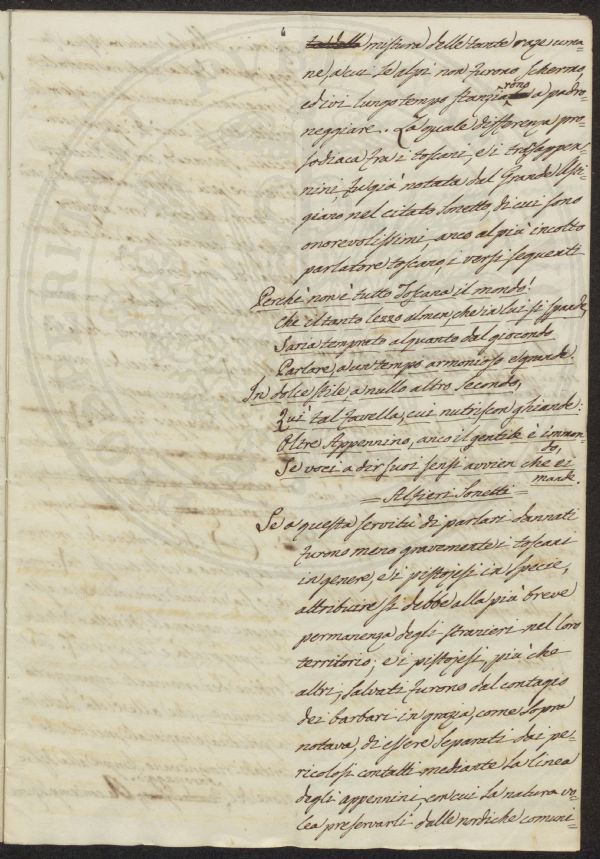 mistura delle tante raze uma-
ne a cui le alpi non furono schermo,
ed ivi lungo tempo stanziarono a padro-
neggiare. La quale differenza pro-
sodiaca fra i toscani, e i trasappen-
nini, fu già notata dal Grande Asti-
giano nel citato Sonetto, di cui sono
onorevolissimi, anco al più incolto
parlatore toscano, i versi seguenti
Perchè non è tutto Toscana il mondo!
Che il tanto lezzo almen, che in lui si spande,
Saria temprato alquanto dal giocondo
Parlare, a un tempo armonioso e grande.
In dolce stile a nullo altro secondo,
Qui tal favella, cui nutriscon ghiande:
Oltre Appennino, anco il gentile è immon-
do,
Se voci a dir suoi sensi avvien che ei
mande.
= Alfieri Sonetti =
Se a questa servitù di parlari dannati
furono meno gravemente i toscani
in genere, e i pistojesi in specie,
attribuire si debbe alla più breve
permanenza degli stranieri nel loro
territorio; e i pistojesi, più che
altri, salvati furono dal contagio
dei barbari in grazia, come sopra
notava, di essere separati dai pe-
ricolosi contatti mediante la linea
degli appennini, con cui la natura vo-
lea preservarli dalle nordiche comuni-